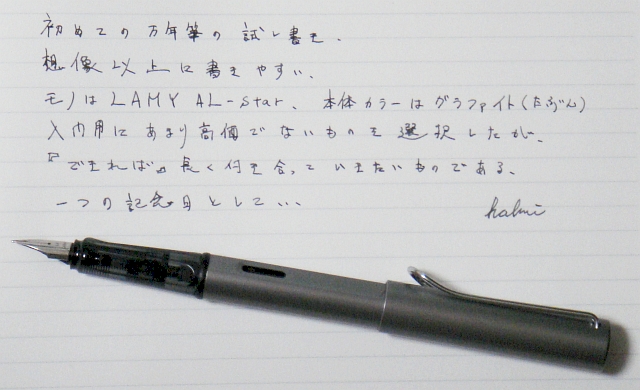 初めての万年筆の試し書き．
想像以上に書きやすい．
モノはLAMY AL-star、本体カラーはグラファイト(たぶん)
入門用にあまり高価でないものを選択したが、
『できれば』長く付き合っていきたいものである．
一つの記念日として…